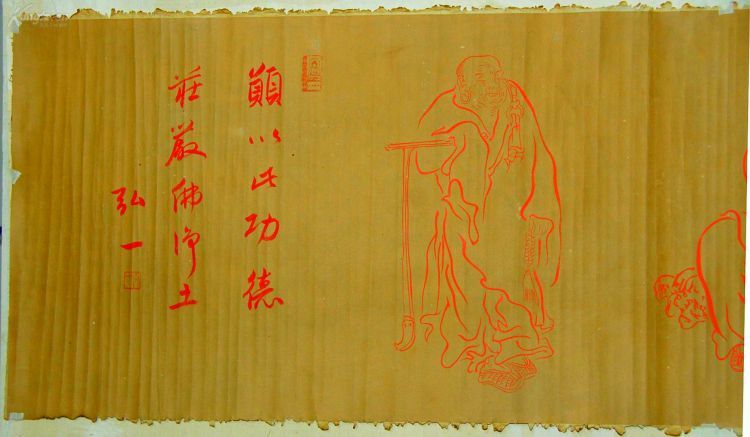 願以此功德
莊嚴佛淨土
弘一